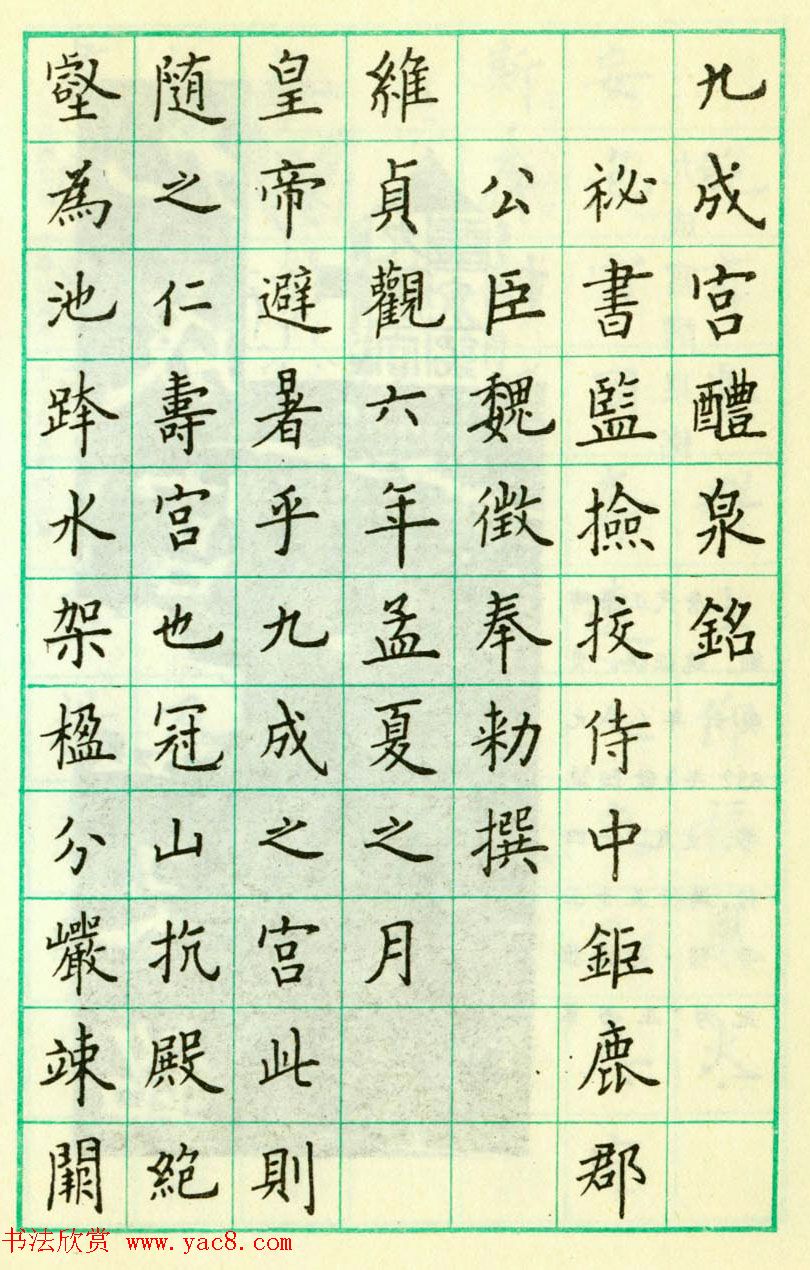 九成宫醴泉銘
祕書監撿挍侍中鉅鹿郡
公臣魏徵奉勑撰
維貞觀六年孟夏之月
皇帝避暑乎九成之宫此則
随之仁壽宫也冠山抗殿絶
壑為池跨水架楹分巖竦闕
书法欣赏 www.yac8.com